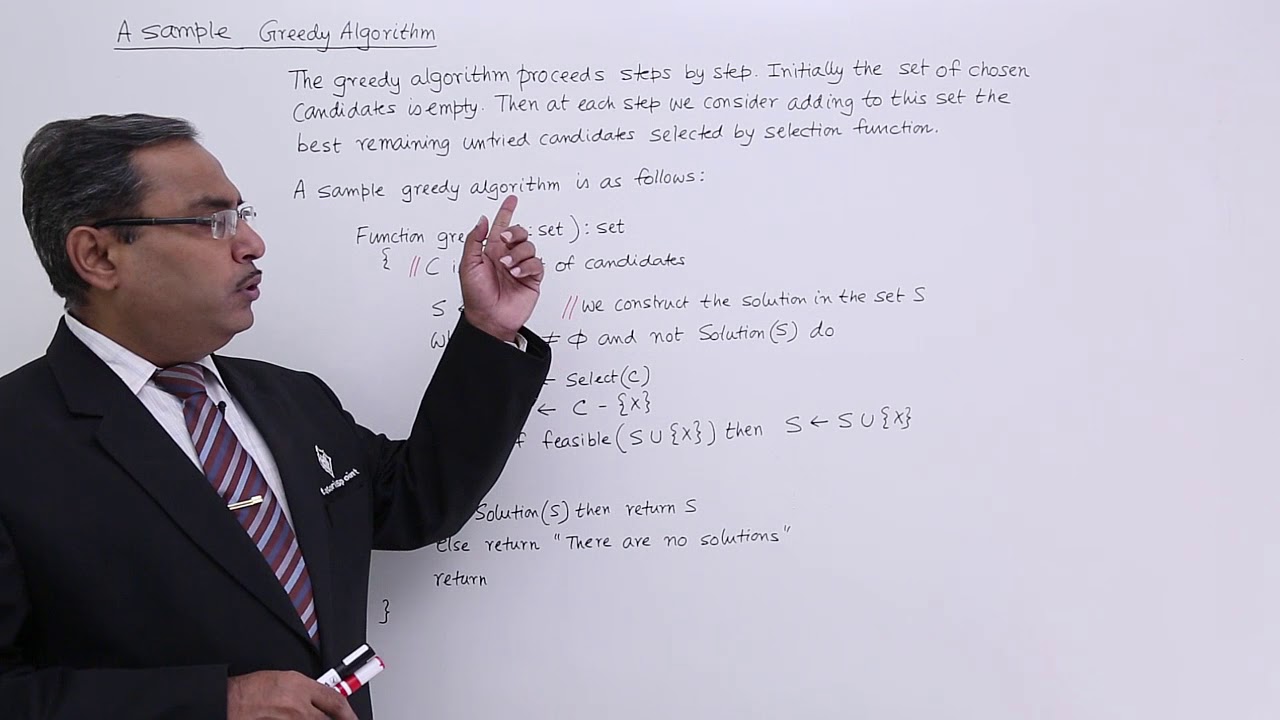 A sample Greedy Algorithm
The greedy algorithm proceeds steps by step. Initially the set of chosen
candidates is empty. Then at each step we consider adding to this set the
best remaining untried candidates selected by selection function.
A sample greedy algorithm is as follows:
Function :set ) : set
{ // C of candidates
S // we construct the solution in the set S
≠ Φ and not Solution(S) do
← Select(C)
← C - {X}
feasible(S ∪ {X}) then S ← S ∪ {X}
Solution(S) then return S
else return "There are no solutions"
return
}
tutorialspoint